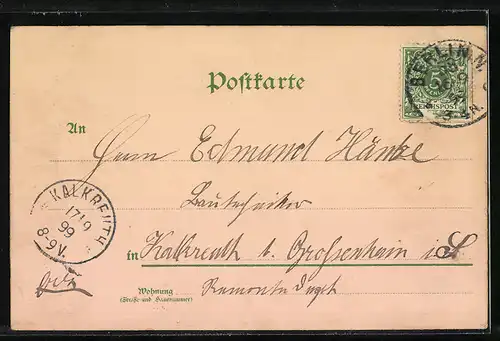 Postkarte
BERLIN N.
REICHSPOST
An
Herrn Edmund Hänke
Bautechniker
KALKREUTH
17/9
99
8-9V.
in Kalkreuth b. Großenhain i. S.
Wohnung
(Straße und Hausnummer)
Remonte